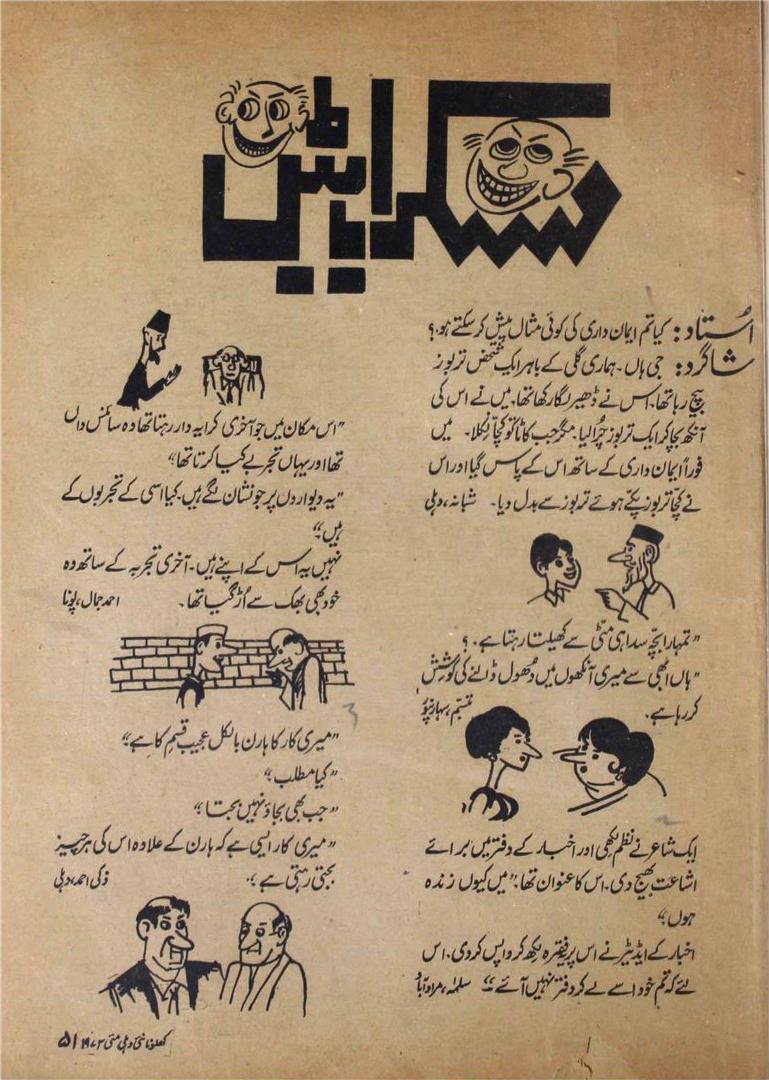 مسکراہٹیں
اُستاد: کیا تم ایمان داری کی کوئی مثال پیش کر سکتے ہو؟
شاگرد: جی ہاں۔ ہماری گلی کے باہر ایک شخص تربوز
بیچ رہا تھا۔ اس نے ڈھیر لگا رکھا تھا۔ میں نے اس کی
آنکھ بچا کر ایک تربوز چُرا لیا۔ مگر جب کاٹا تو کچّا نکلا۔ میں
فوراً ایمان داری کے ساتھ اس کے پاس گیا اور اس
نے کچّا تربوز پکّے ہوئے تربوز سے بدل دیا۔ شبانہ، دہلی
"تمہارا بچّہ سدا ہی مٹّی سے کھیلتا رہتا ہے۔؟
"ہاں ابھی سے میری آنکھوں میں دُھول ڈالنے کی کوشش
کر رہا ہے۔ تبسّم، سہارنپور
ایک شاعر نے نظم لکھی اور اخبار کے دفتر میں برائے
اشاعت بھیج دی۔ اس کا عنوان تھا: "میں کیوں زندہ
ہوں؟"
اخبار کے ایڈیٹر نے اس پر فقرہ لکھ کر واپس کر دی۔ اس
لئے کہ تم خود اسے لے کر دفتر نہیں آئے" سلمہ، مرادآباد
"اس مکان میں جو آخری کرایہ دار رہتا تھا وہ سائنس داں
تھا اور یہاں تجربے کیا کرتا تھا"
"یہ دیواروں پر جو نشان لگے ہیں۔ کیا اسی کے تجربوں کے
ہیں؟"
نہیں یہ اس کے اپنے ہیں۔ آخری تجربہ کے ساتھ وہ
خود بھی بھک سے اُڑ گیا تھا۔ احمد جمال، پونا
"میری کار کا ہارن بالکل عجیب قسم کا ہے"
"کیا مطلب؟"
"جب بھی بجاؤ نہیں بجتا"
"میری کار ایسی ہے کہ ہارن کے علاوہ اس کی ہر چیز
بجتی رہتی ہے"۔ ذکی احمد، دہلی
کھلونا نئی دہلی مئی ۱۹۷۳ ۵۱